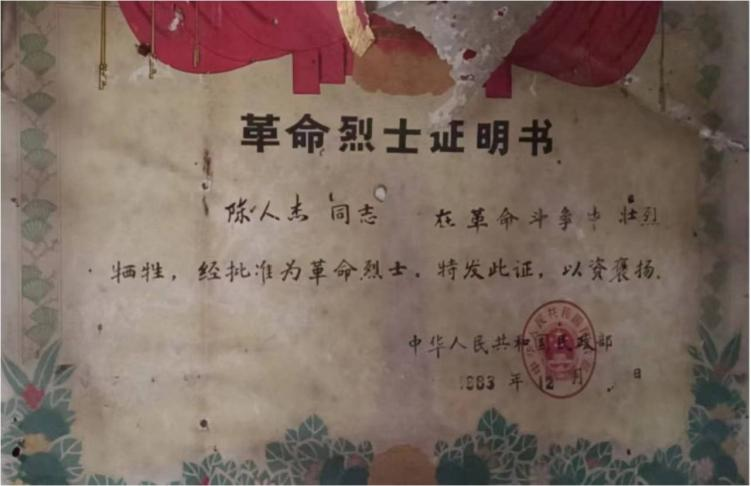 革命烈士证明书
陈人杰 同志 在革命斗争中 壮烈
牺牲，经批准为革命烈士。特发此证，以资褒扬。
中华人民共和国民政部
1983 年 12 月 日